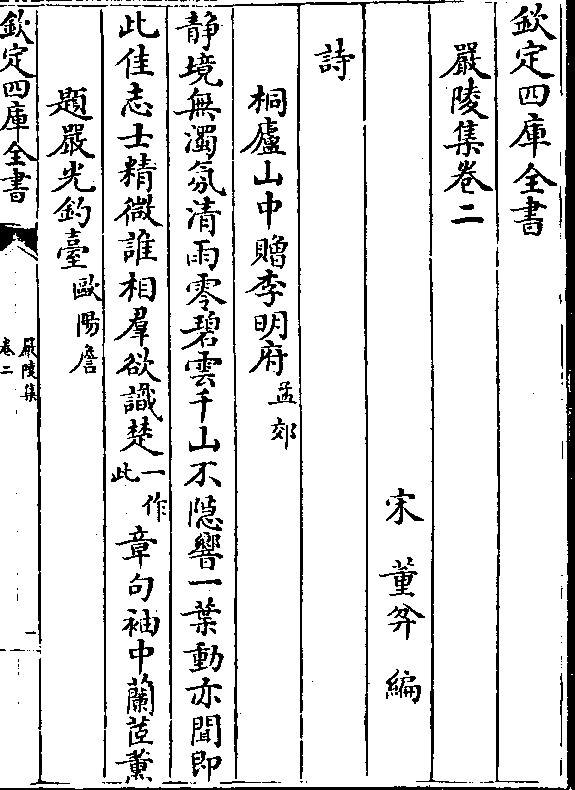 欽定四庫全書
嚴陵集卷二
宋 董弅 編
詩
桐廬山中贈李明府孟郊
静境無濁氛清雨零碧雲千山不隱響一葉動亦聞即
此佳志士精微誰相羣欲識楚一作此章句袖中蘭茝薰
題嚴光釣臺歐陽詹
欽定四庫全書
嚴陵集
卷二
一